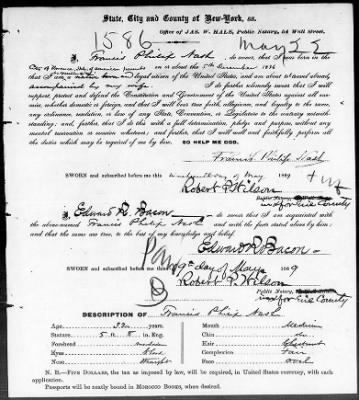 State, City and County of New-York, ss.
Office of JAS. W. HALE, Public Notary, 54 Wall street.
1586
May 22
I, Francis Philip Nash, do swear, that I was born in the
on or about the 5th December 1836
that I am a native born and legal citizen of the United States, and am about to travel abroad,
accompanied by my wife. I do farther solemnly swear that I will
support, protect and defend the Constitution and Government of the United States against all ene-
mies, whether domestic or foreign, and that I will bear true faith, allegiance, and loyalty to the same,
any ordinance, resolution, or law of any State Convention, or Legislature to the contrary notwith-
standing; and farther, that I do this with a full determination, pledge and purpose, without any
mental reservation or evasion whatever; and farther, that I will well and faithfully perform all
the duties which may be required of me by law. SO HELP ME GOD.
Francis Philip Nash
SWORN and subscribed before me this day of May 1869
Robert P. Wilson
Public Notary,
in & for Erie County
I, Edward R. Bacon do swear that I am acquainted with
the above-named Francis Philip Nash and with the facts stated above by him:
and that the same are true, to the best of my knowledge and belief.
Edward R. Bacon
SWORN and subscribed before me 19th day of May 1869
Robert P. Wilson
Public Notary,
in & for Erie County
DESCRIPTION OF Francis Philip Nash
Age 32 years. Mouth Medium
Stature 5 ft. 8 in. Eng. Chin do
Forehead medium Hair Chestnut
Eyes Blue Complexion Fair
Nose Straight Face oval
N. B.—FIVE DOLLARS, the tax as imposed by law, will be required, in United States currency, with each
application.
Passports will be neatly bound in MOROCCO BOOKS, when desired.